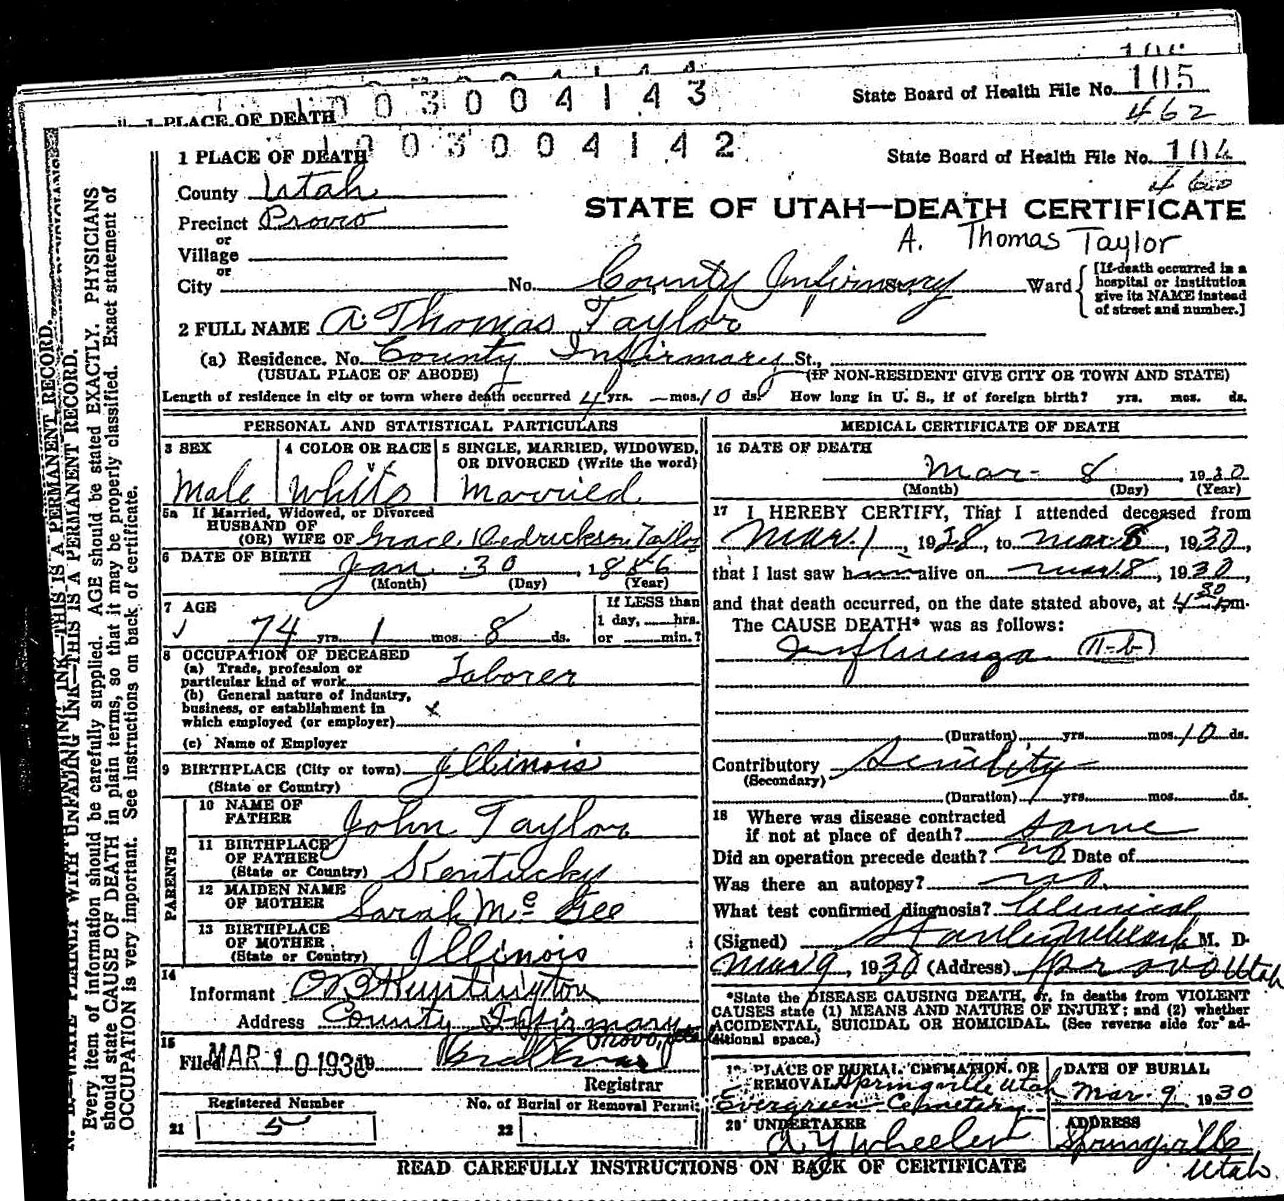 105
1003004143
State Board of Health File No. 105
1 PLACE OF DEATH
462
1003004142
1 PLACE OF DEATH
State Board of Health File No. 104
460
County Utah
STATE OF UTAH—DEATH CERTIFICATE
Precinct Provo
A. Thomas Taylor
or
Village
or
City No. County Infirmary Ward
[If death occurred in a
hospital or institution
give its NAME instead
of street and number.]
2 FULL NAME A Thomas Taylor
(a) Residence. No. County Infirmary St.,
(USUAL PLACE OF ABODE) (IF NON-RESIDENT GIVE CITY OR TOWN AND STATE)
Length of residence in city or town where death occurred 4 yrs. — mos. 10 ds. How long in U. S., if of foreign birth? yrs. mos. ds.
PERSONAL AND STATISTICAL PARTICULARS
3 SEX
Male
4 COLOR OR RACE
White
5 SINGLE, MARRIED, WIDOWED,
OR DIVORCED (Write the word)
Married
5a If Married, Widowed, or Divorced
HUSBAND OF
(OR) WIFE OF Grace Taylor
6 DATE OF BIRTH Jan 30
(Month) (Day) (Year)
7 AGE
74 yrs. 1 mos. 8 ds.
If LESS than
1 day, hrs.
or min.?
8 OCCUPATION OF DECEASED
(a) Trade, profession or
particular kind of work Laborer
(b) General nature of industry,
business, or establishment in
which employed (or employer) x
(c) Name of Employer
9 BIRTHPLACE (City or town) Illinois
(State or Country)
PARENTS
10 NAME OF
FATHER John Taylor
11 BIRTHPLACE
OF FATHER
(State or Country) Kentucky
12 MAIDEN NAME
OF MOTHER Sarah McGee
13 BIRTHPLACE
OF MOTHER
(State or Country) Illinois
14
Informant O B Huntington
Address County Infirmary
Provo, Utah
15
Filed MAR 10 1930
Registrar
Registered Number
21 5
No. of Burial or Removal Permit
22
MEDICAL CERTIFICATE OF DEATH
16 DATE OF DEATH
Mar- 8, 1930
(Month) (Day) (Year)
17 I HEREBY CERTIFY, That I attended deceased from
Mar. 1, 1928, to Mar 8, 1930,
that I last saw h alive on Mar. 8, 1930,
and that death occurred, on the date stated above, at 4 30 pm.
The CAUSE DEATH* was as follows:
Influenza (11-b)
(Duration) yrs. mos. 10 ds.
Contributory Senility
(Secondary)
(Duration) yrs. mos. ds.
18 Where was disease contracted
if not at place of death? Same
Did an operation precede death? no Date of
Was there an autopsy? no.
What test confirmed diagnosis? Clinical
(Signed) M. D.
Mar 9, 1930 (Address) Provo Utah
*State the DISEASE CAUSING DEATH, or, in deaths from VIOLENT
CAUSES state (1) MEANS AND NATURE OF INJURY; and (2) whether
ACCIDENTAL, SUICIDAL OR HOMICIDAL. (See reverse side for additional space.)
19 PLACE OF BURIAL, CREMATION, OR
REMOVAL Springville Utah
Evergreen Cemetery
DATE OF BURIAL
Mar. 9, 1930
20 UNDERTAKER
A Y Wheeler
ADDRESS
Springville
Utah
READ CAREFULLY INSTRUCTIONS ON BACK OF CERTIFICATE
N. B.—WRITE PLAINLY WITH UNFADING INK—THIS IS A PERMANENT RECORD.
Every item of information should be carefully supplied. AGE should be stated EXACTLY. PHYSICIANS
should state CAUSE OF DEATH in plain terms, so that it may be properly classified. Exact statement of
OCCUPATION is very important. See instructions on back of certificate.